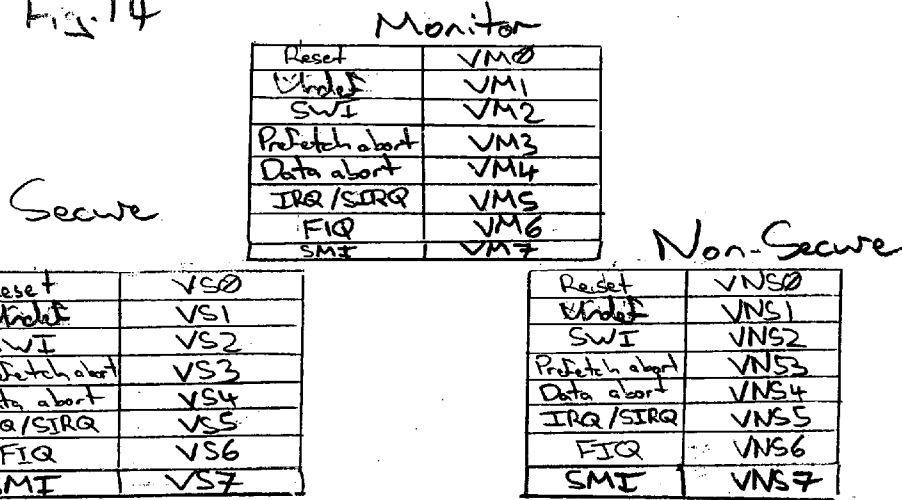 Fig. 14
Monitor
Reset VM0
Undef VM1
SWI VM2
Prefetch abort VM3
Data abort VM4
IRQ/SIRQ VM5
FIQ VM6
SMI VM7
Secure
eset VS0
Undef VS1
SWI VS2
efetch abort VS3
ta abort VS4
Q/SIRQ VS5
FIQ VS6
SMI VS7
Non-Secure
Reset VNS0
Undef VNS1
SWI VNS2
Prefetch abort VNS3
Data abort VNS4
IRQ/SIRQ VNS5
FIQ VNS6
SMI VNS7